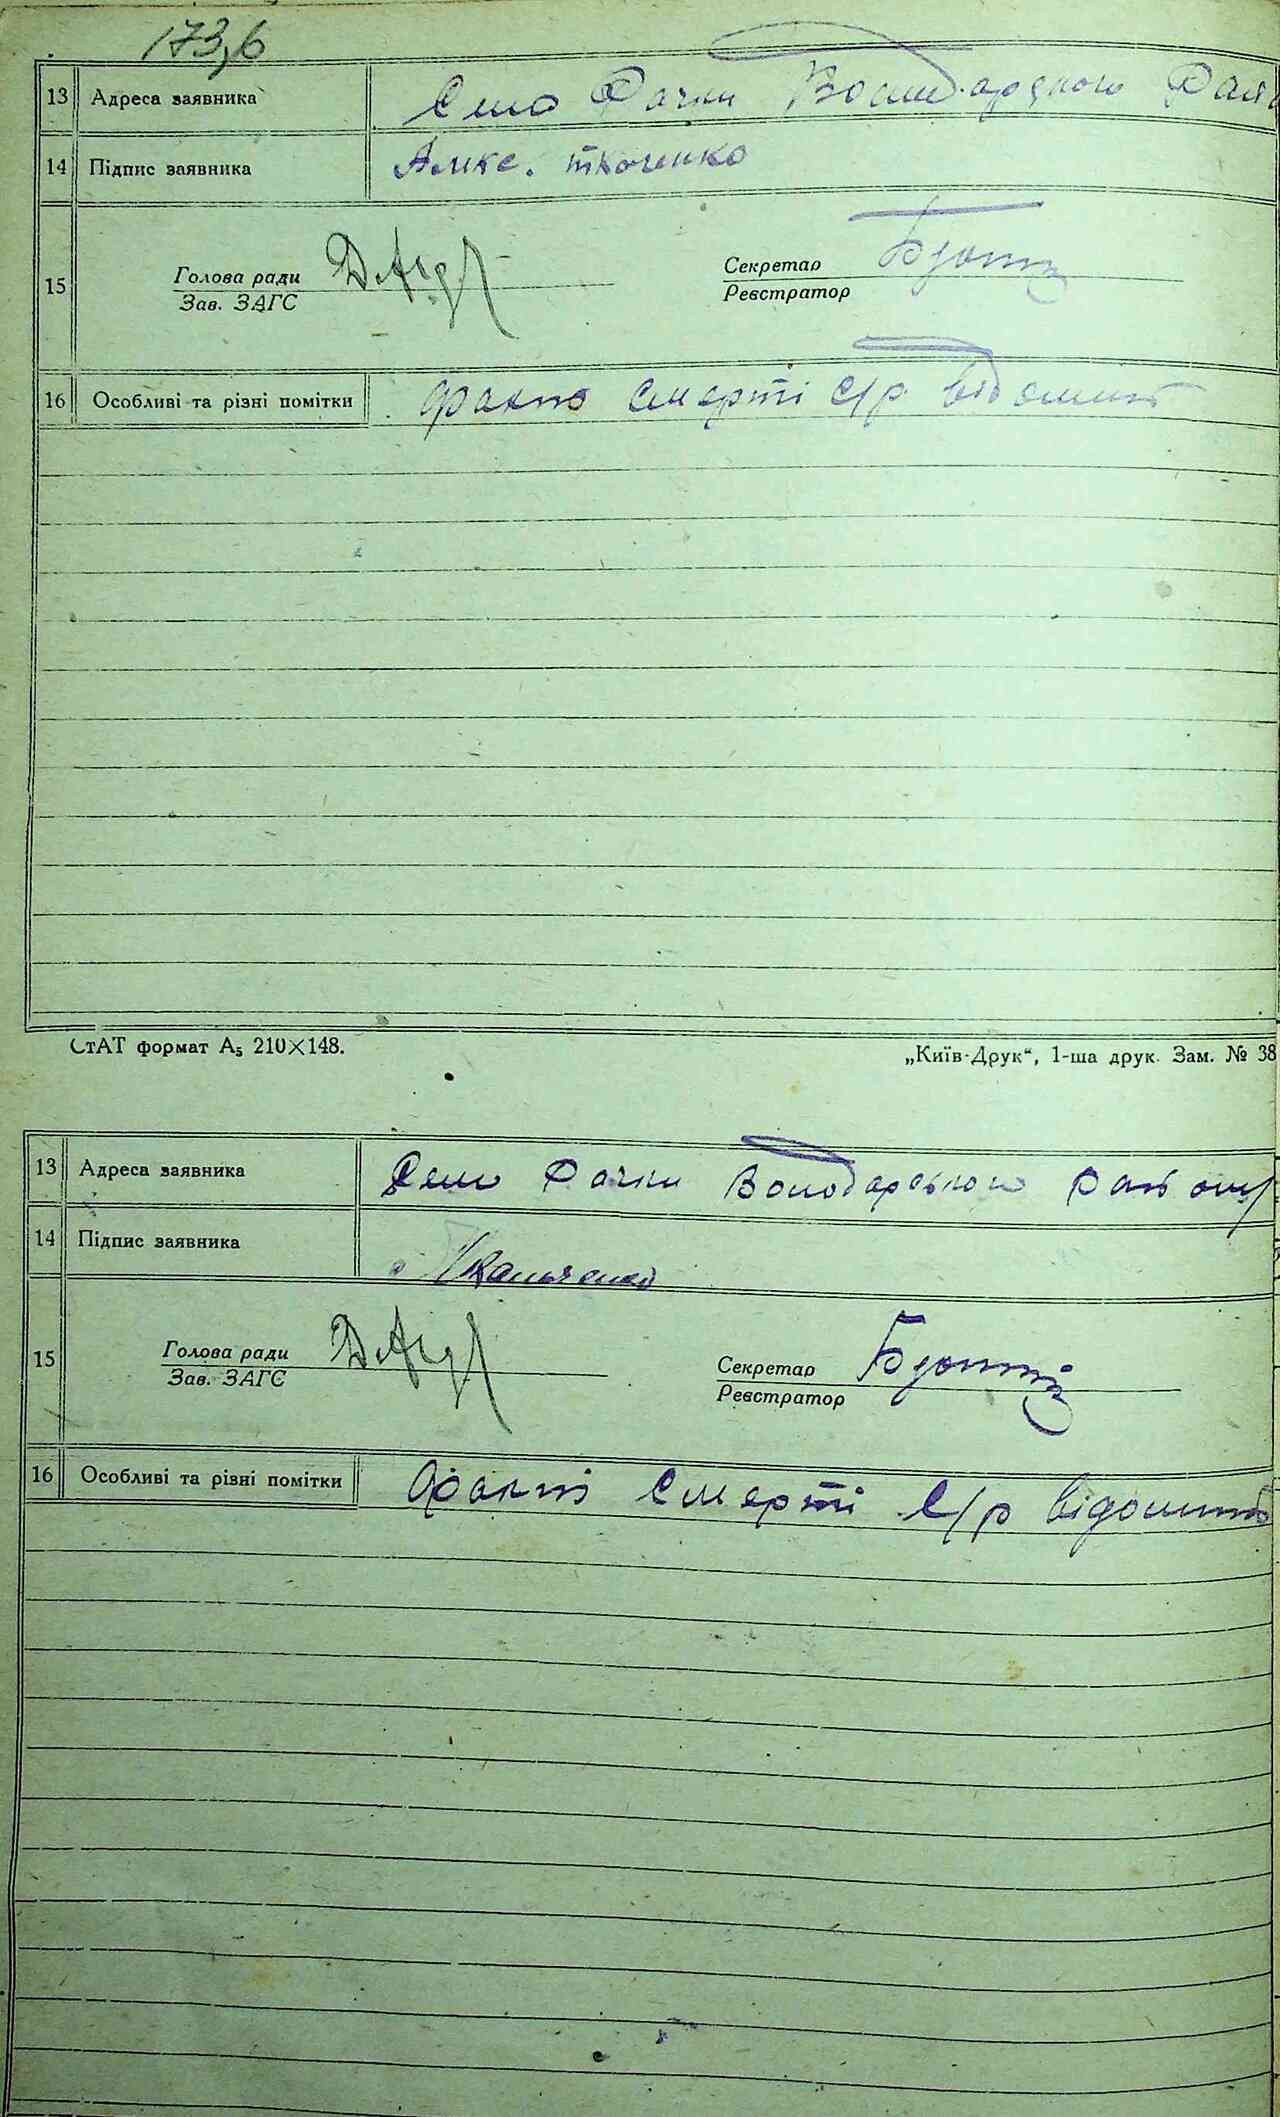 173,6
13 Адреса заявника Село Рачки Володарського Рай
14 Підпис заявника Алекс. ткаченко
15 Голова ради Секретар
Зав. ЗАГС Реєстратор
16 Особливі та різні помітки факт Смерті С/р відомий
СтАТ формат А₅ 210×148. „Київ-Друк“, 1-ша друк. Зам. № 38
13 Адреса заявника Село Рачки Володарського Району
14 Підпис заявника
15 Голова ради Секретар
Зав. ЗАГС Реєстратор
16 Особливі та різні помітки Факт Смерті С/р відомий